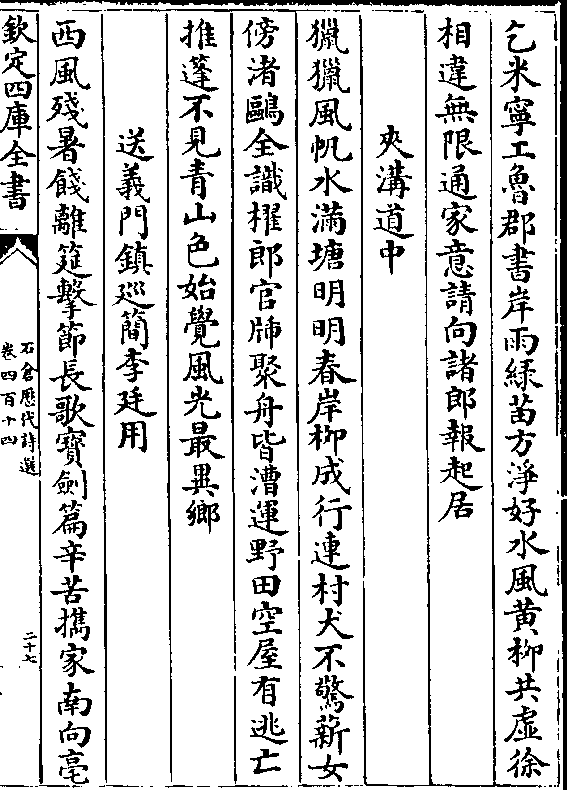 乞米寧工魯郡書岸雨緑苗方淨好水風黄柳共虚徐
相違無限通家意請向諸郎報起居
夾溝道中
獵獵風帆水滿塘明明春岸柳成行連村犬不驚薪女
傍渚鷗全識櫂郎官牐聚舟皆漕運野田空屋有逃亡
推蓬不見青山色始覺風光最異鄉
送義門鎮廵簡李廷用
西風殘暑餞離筵擊節長歌寳劍篇辛苦攜家南向亳
欽定四庫全書
石倉歷代詩選
卷四百十四
二十七